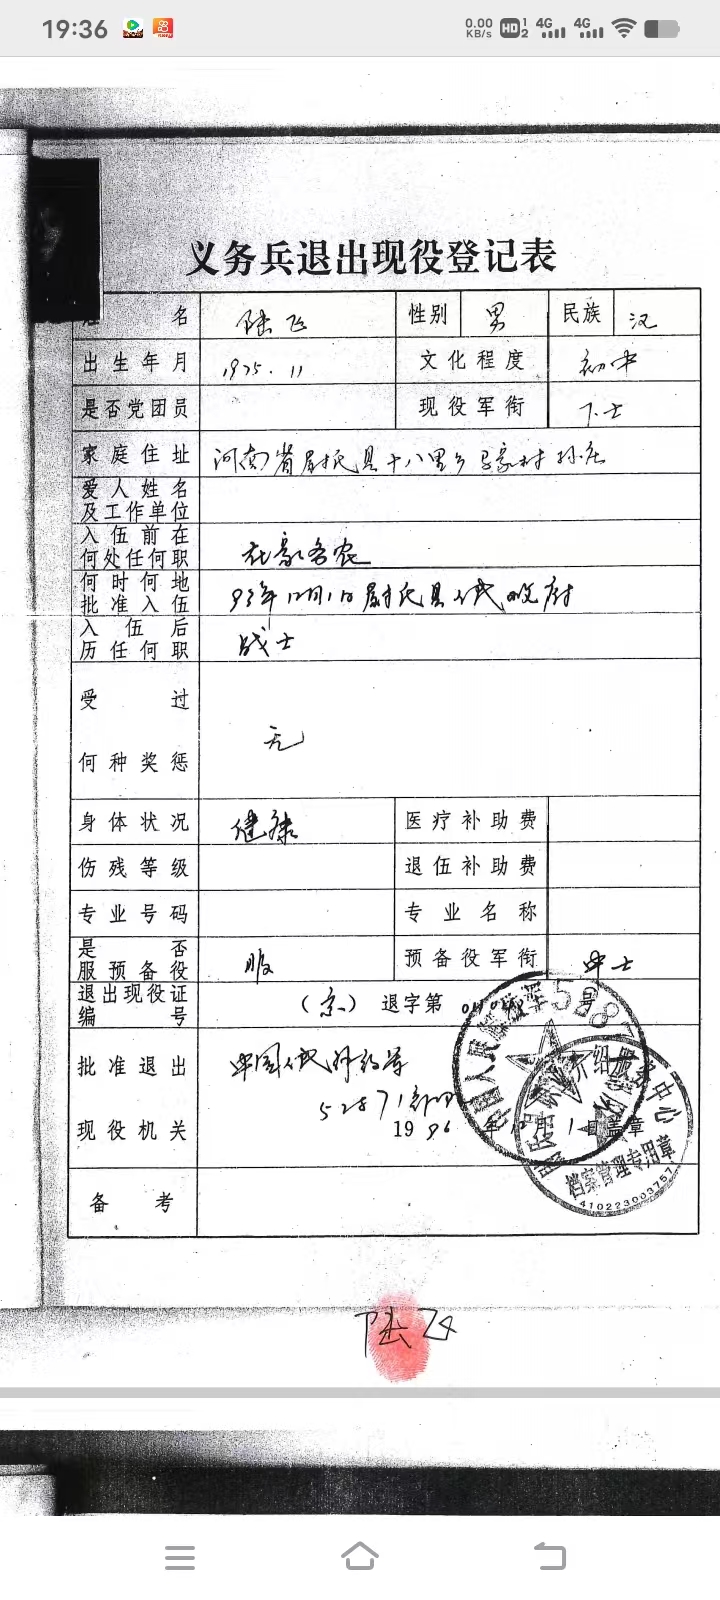 19:36
0.00 KB/s HD 1 2 4G 4G
义务兵退出现役登记表
名 陆飞 性别 男 民族 汉
出生年月 1975.11 文化程度 初中
是否党团员 现役军衔 下士
家庭住址 河南省尉氏县十八里乡 村 孙庄
爱人姓名
及工作单位
入伍前在
何处任何职 在家务农
何时何地
批准入伍 93年12月1日尉氏县人民政府
入伍后
历任何职 战士
受过
何种奖惩 无
身体状况 健康 医疗补助费
伤残等级 退伍补助费
专业号码 专业名称
是否
服预备役 服 预备役军衔 中士
退出现役证
编号 (京) 退字第 号
批准退出
现役机关 中国人民解放军
52871部队
1996年12月1日盖章
中国人民解放军5287
服务中心
档案管理专用章
410223003757
备考
陆飞